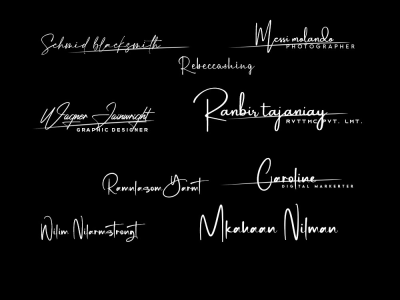 Schmid blacksmith
Messi molando
PHOTOGRAPHER
Rebeccashing
Wagner Jainwright
GRAPHIC DESIGNER
Ranbir tajaniay
RVTTHC PVT. LMT.
Caroline
DIGITAL MARKERTER
Ramulasom Yarmt
Wilim Nilarmstrongt
Mkahaan Nilman